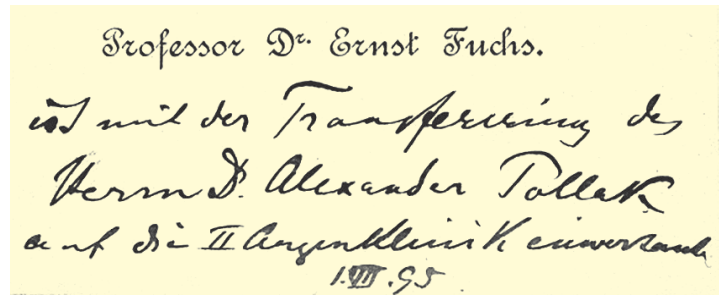 Professor Dr. Ernst Fuchs.
ist mit der Transferierung des
Herrn D. Alexander Pollak
auf die II Augenklinik einverstand
1.VII.95